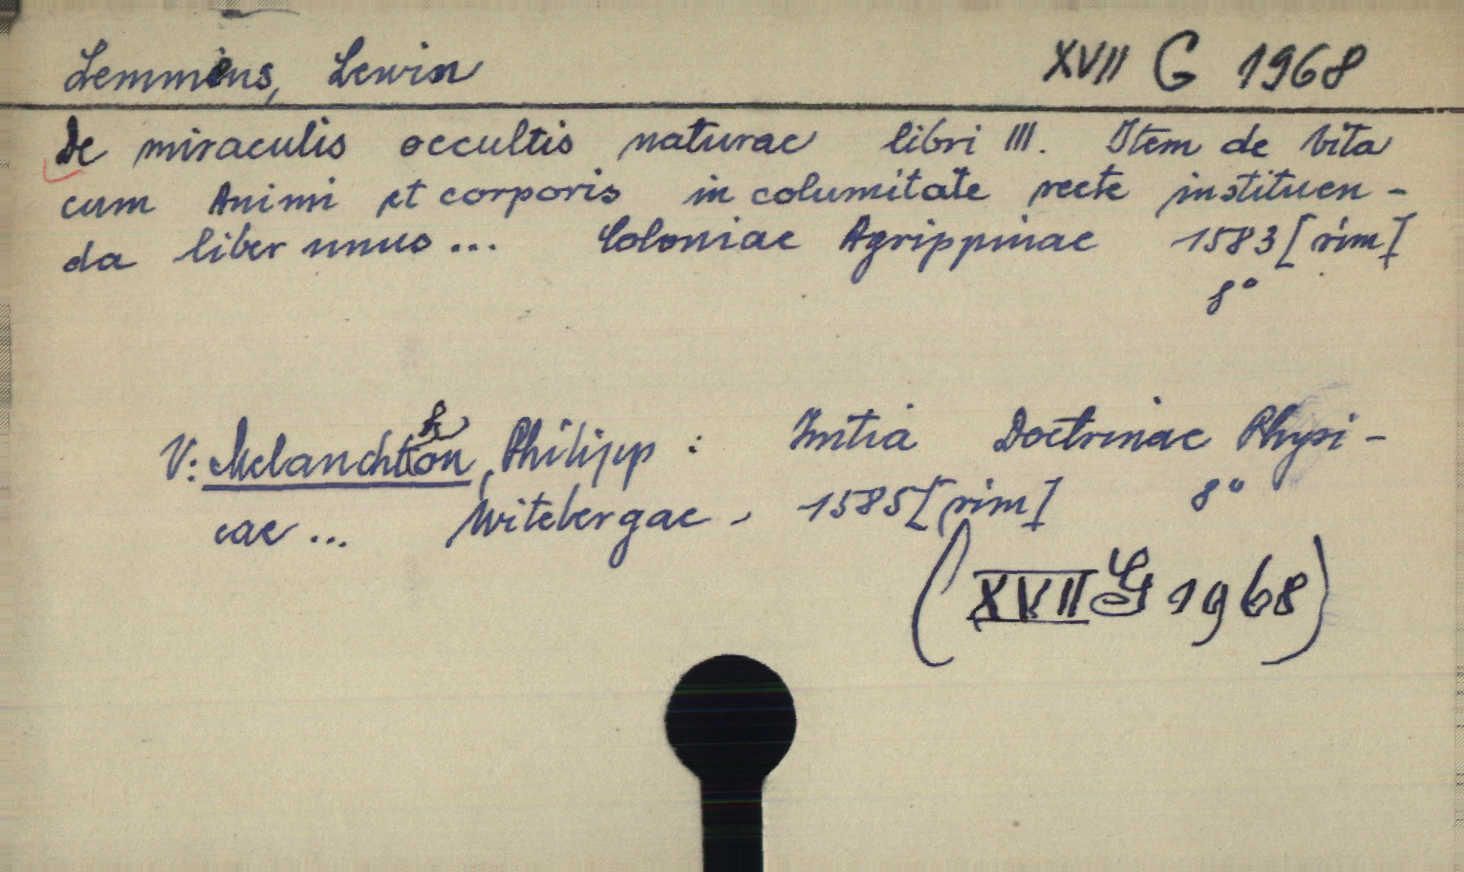 Lemmens, Lewin XVII G 1968
De miraculis occultis naturae libri III. Item de vita
cum Animi et corporis in columitate recte instituen-
da liber unus... Coloniae Agrippinae 1583 [rím]
8°
V: Melanchthon, Philipp: Initia Doctrinae Physi-
cae... Witebergae, 1585 [rím] 8°
(XVII G 1968)